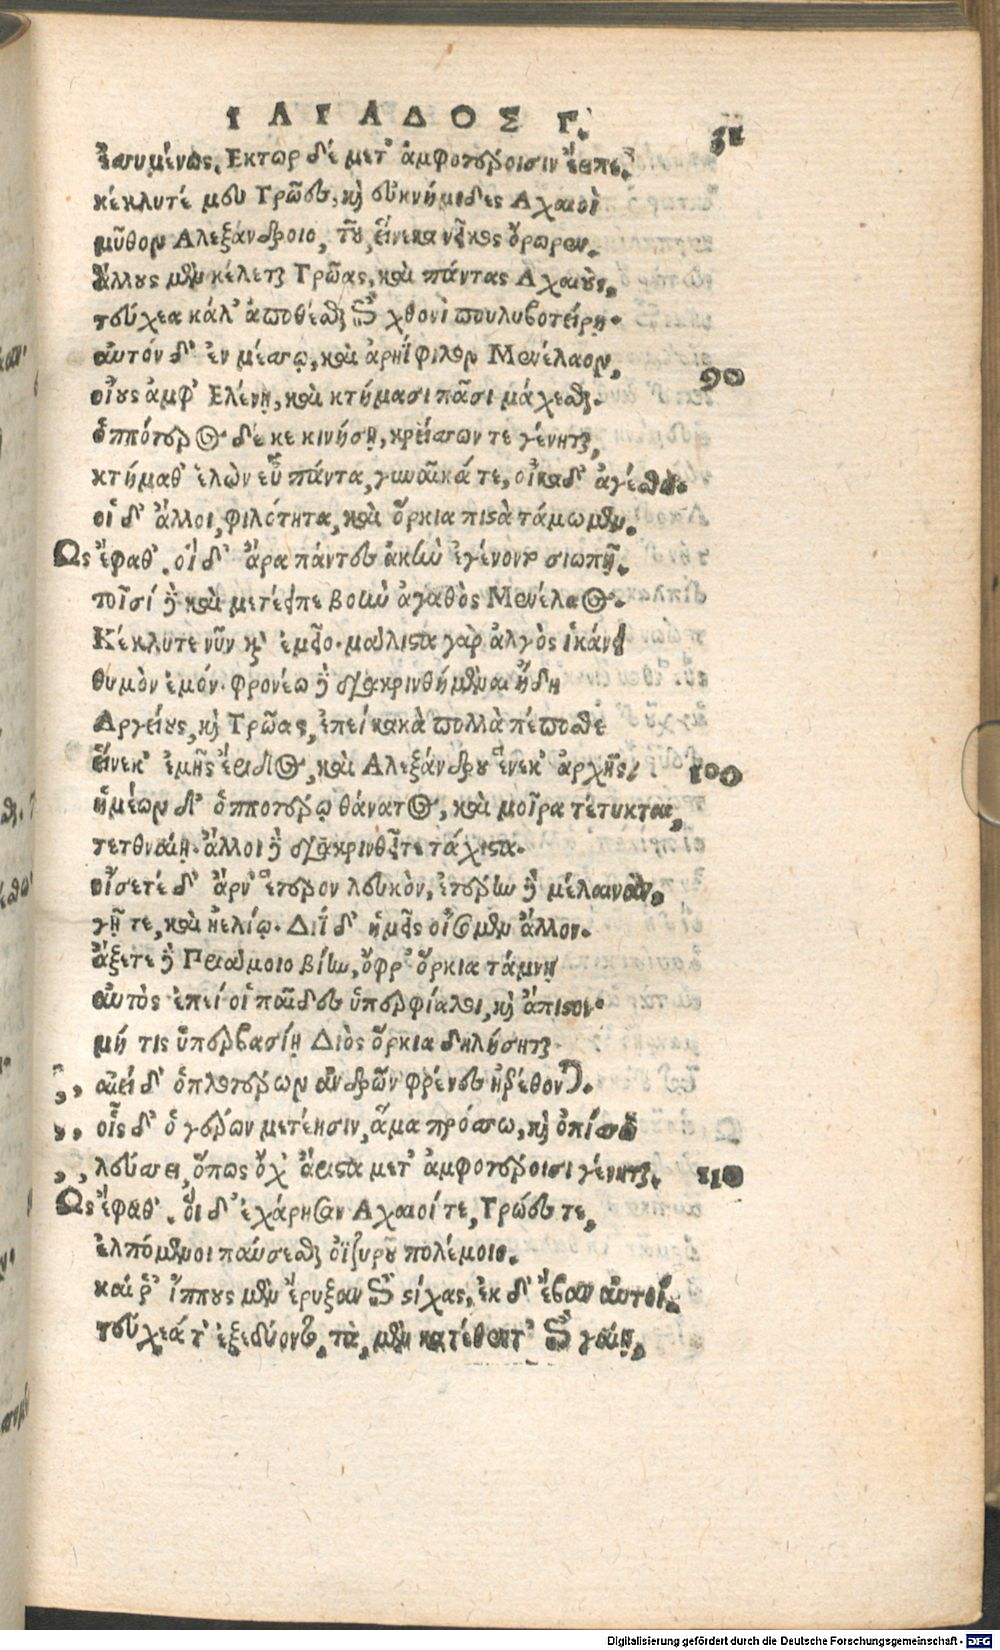 ΙΛΙΑΔΟΣ Γ.
51
ἐσσυμένως. Εκτωρ δέ μετ' ἀμφοτέροισιν ἔειπε.
κέκλυτέ μευ Τρῶες, καὶ εὐκνήμιδες Αχαιοὶ
μῦθον Αλεξάνδροιο, τοῦ, εἵνεκα νεῖκος ὄρωρεν.
ἄλλους μὲν κέλεται Τρῶας, καὶ πάντας Αχαιοὺς,
τεύχεα κάλ' ἀποθέσθαι ἐπὶ χθονὶ πουλυβοτείρῃ.
αὐτόν δ' ἐν μέσσῳ, καὶ ἀρηΐφιλον Μενέλαον,
90
οἴους ἀμφ' Ελένῃ, καὶ κτήμασι πᾶσι μάχεσθαι.
ὁππότερος δέ κε κινήσῃ, κρείσσων τε γένηται,
κτήμαθ' ἑλὼν εὖ πάντα, γυναῖκά τε, οἴκαδ' ἀγέσθω.
οἱ δ' ἄλλοι, φιλότητα, καὶ ὅρκια πιστὰ τάμωμεν.
Ως ἔφαθ'. οἱ δ' ἄρα πάντες ἀκὴν ἐγένοντο σιωπῇ.
τοῖσί δὲ καὶ μετέειπε βοὴν ἀγαθὸς Μενέλαος.
Κέκλυτε νῦν καὶ ἐμεῖο. μάλιστα γὰρ ἄλγὸς ἱκάνει
θυμὸν ἐμόν. φρονέω δὲ διακρινθήμεναι ἤδη
Αργείους, καὶ Τρῶας, ἐπεί κακὰ πολλὰ πέποσθε
εἵνεκ' ἐμῆς ἔριδος, καὶ Αλεξάνδρου ἕνεκ' ἀρχῆς.
100
ἡμέων δ' ὁπποτέρῳ θάνατος, καὶ μοῖρα τέτυκται,
τετθναίη. ἄλλοι δὲ διακρινθεῖτε τάχιστα.
οἴσετέ δ' ἄρν' ἕτερον λευκὸν, ἑτέρην δὲ μέλαιναν,
γῇ τε, καὶ ἠελίῳ. Διῒ δ' ἡμεῖς οἴσομεν ἄλλον.
ἄξετε δὲ Πριάμοιο βίην, ὄφρ' ὅρκια τάμνῃ
αὐτὸς ἐπεί οἱ παῖδες ὑπερφίαλοι, καὶ ἄπιστοι.
μή τις ὑπερβασίῃ Διὸς ὅρκια δηλήσηται.
,, αἰεί δ' ὁπλοτέρων ἀνδρῶν φρένες ἠερέθονται.
,, οἷς δ' ὁ γέρων μετέῃσιν, ἅμα πρόσσω, καὶ ὀπίσσω
110
,, λεύσσει, ὅπως ὄχ' ἄριστα μετ' ἀμφοτέροισι γένηται.
Ως ἔφαθ'. οἱ δ' ἐχάρησαν Αχαιοί τε, Τρῶές τε,
ἐλπόμενοι παύσεσθαι ὀϊζυροῦ πολέμοιο.
καί ῥ' ἵππους μὲν ἔρυξαν ἐπὶ στίχας, ἐκ δ' ἔβαν αὐτοὶ.
τεύχεά τ' ἐξεδύοντο, τὰ, μὲν κατέθεντ' ἐπὶ γαίῃ,
Digitalisierung gefördert durch die Deutsche Forschungsgemeinschaft - DFG